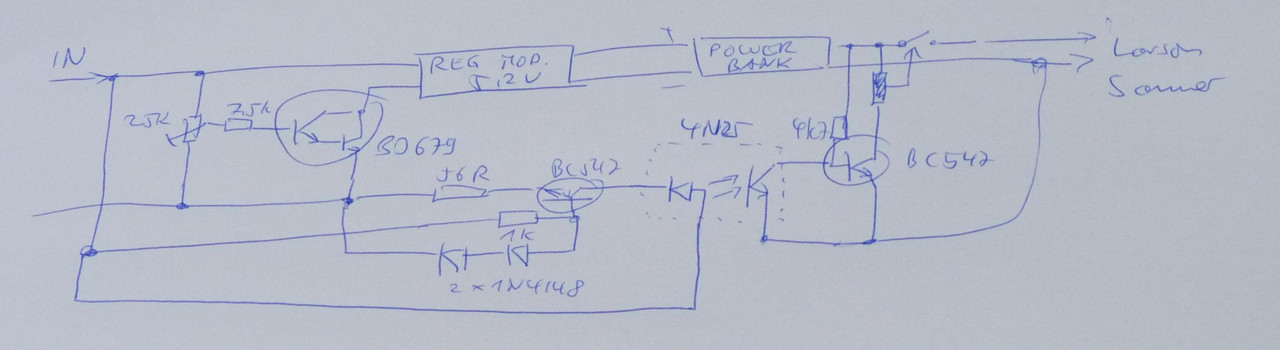 IN
REG MOD.
5,2V
+
POWER
BANK
-
Larson
Scanner
25K
7,5K
BD679
4N25
4k7
BC547
56R
BC547
1K
2 x 1N4148